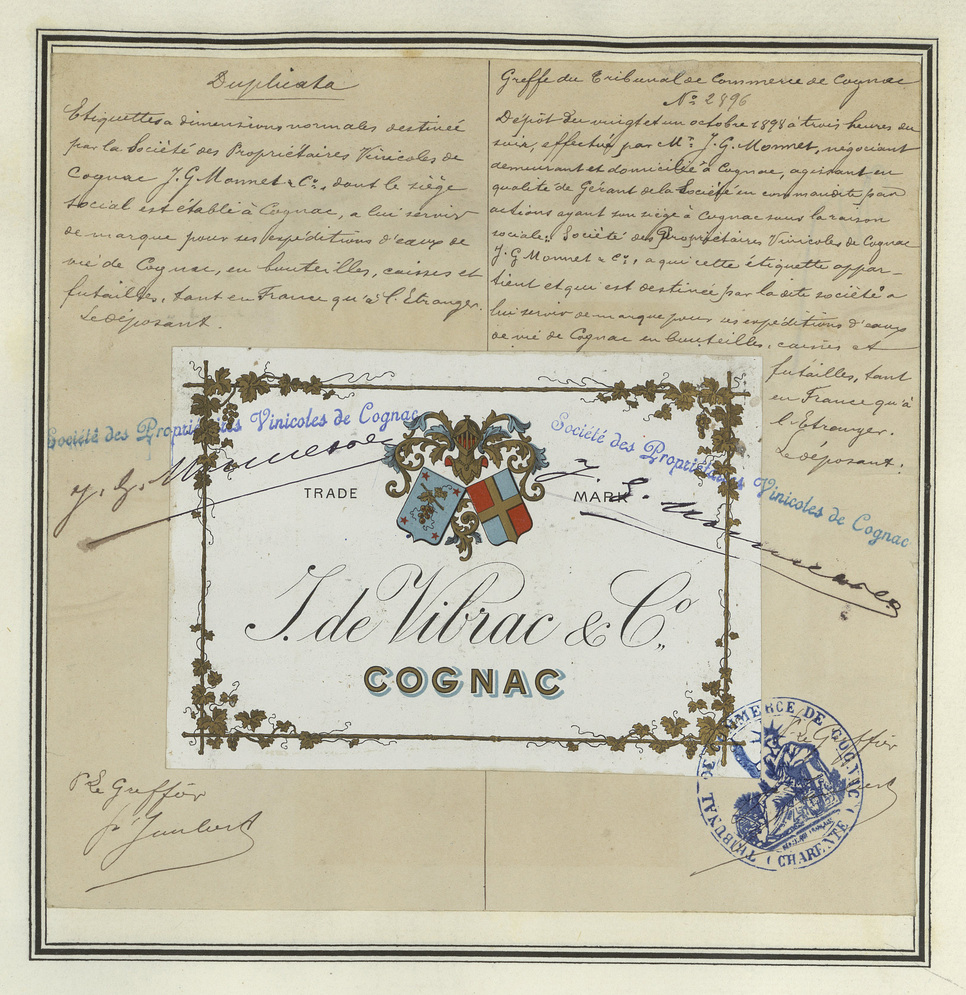 Duplicata
Etiquettes a dimensions normales destineé
par la Société des Propriétaires Vinicoles de
Cognac J.G. Monnet & Cº, dont le siége
social est établi à Cognac, a lui servir
de marque pour ses expéditions d'eaux de
vie de Cognac, en bouteilles, caisses et
futailles, tant en France qu'à l'Etranger.
Le déposant.
Greffe du Tribunal de Commerce de Cognac
Nº 2896
Dépôt du vingt et un octobre 1898 à trois heures du
soir, effectué par Mr. J.G. Monnet, négociant
demeurant et domicilié à Cognac, agissant en
qualité de Gérant de la Société en commandite par
actions ayant son siége à Cognac sous la raison
sociale: Société des Propriétaires Vinicoles de Cognac
J.G Monnet & Cº, a qui cette étiquette appar-
tient et qui est destinée par la dite société a
lui servir de marque pour ses expéditions d'eaux
de vie de Cognac en bouteilles, caisses et
futailles, tant
en France qu'à
l'Etranger.
Le déposant.
Société des Propriétaires Vinicoles de Cognac
J. G. Monnet & Cº
Société des Propriétaires Vinicoles de Cognac
J. G. Monnet & Cº
TRADE MARK
J. de Vibrac & Cº
COGNAC
Pr Le Greffier
Pr Le Greffier
TRIBUNAL DE COMMERCE DE COGNAC
(CHARENTE)